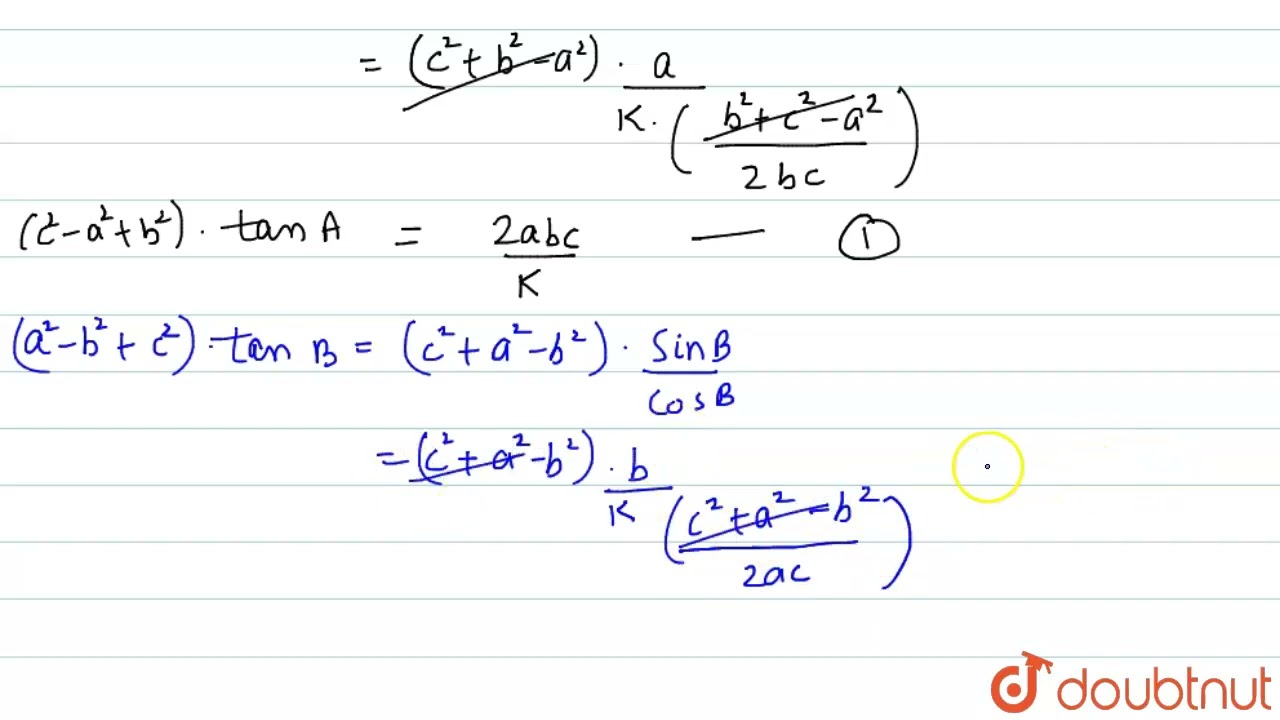 = (c² + b² - a²) · a / K · ( (b² + c² - a²) / 2bc )
(c² - a² + b²) · tan A = 2abc / K — ①
(a² - b² + c²) · tan B = (c² + a² - b²) · Sin B / Cos B
= (c² + a² - b²) · b / K ( (c² + a² - b²) / 2ac )
doubtnut